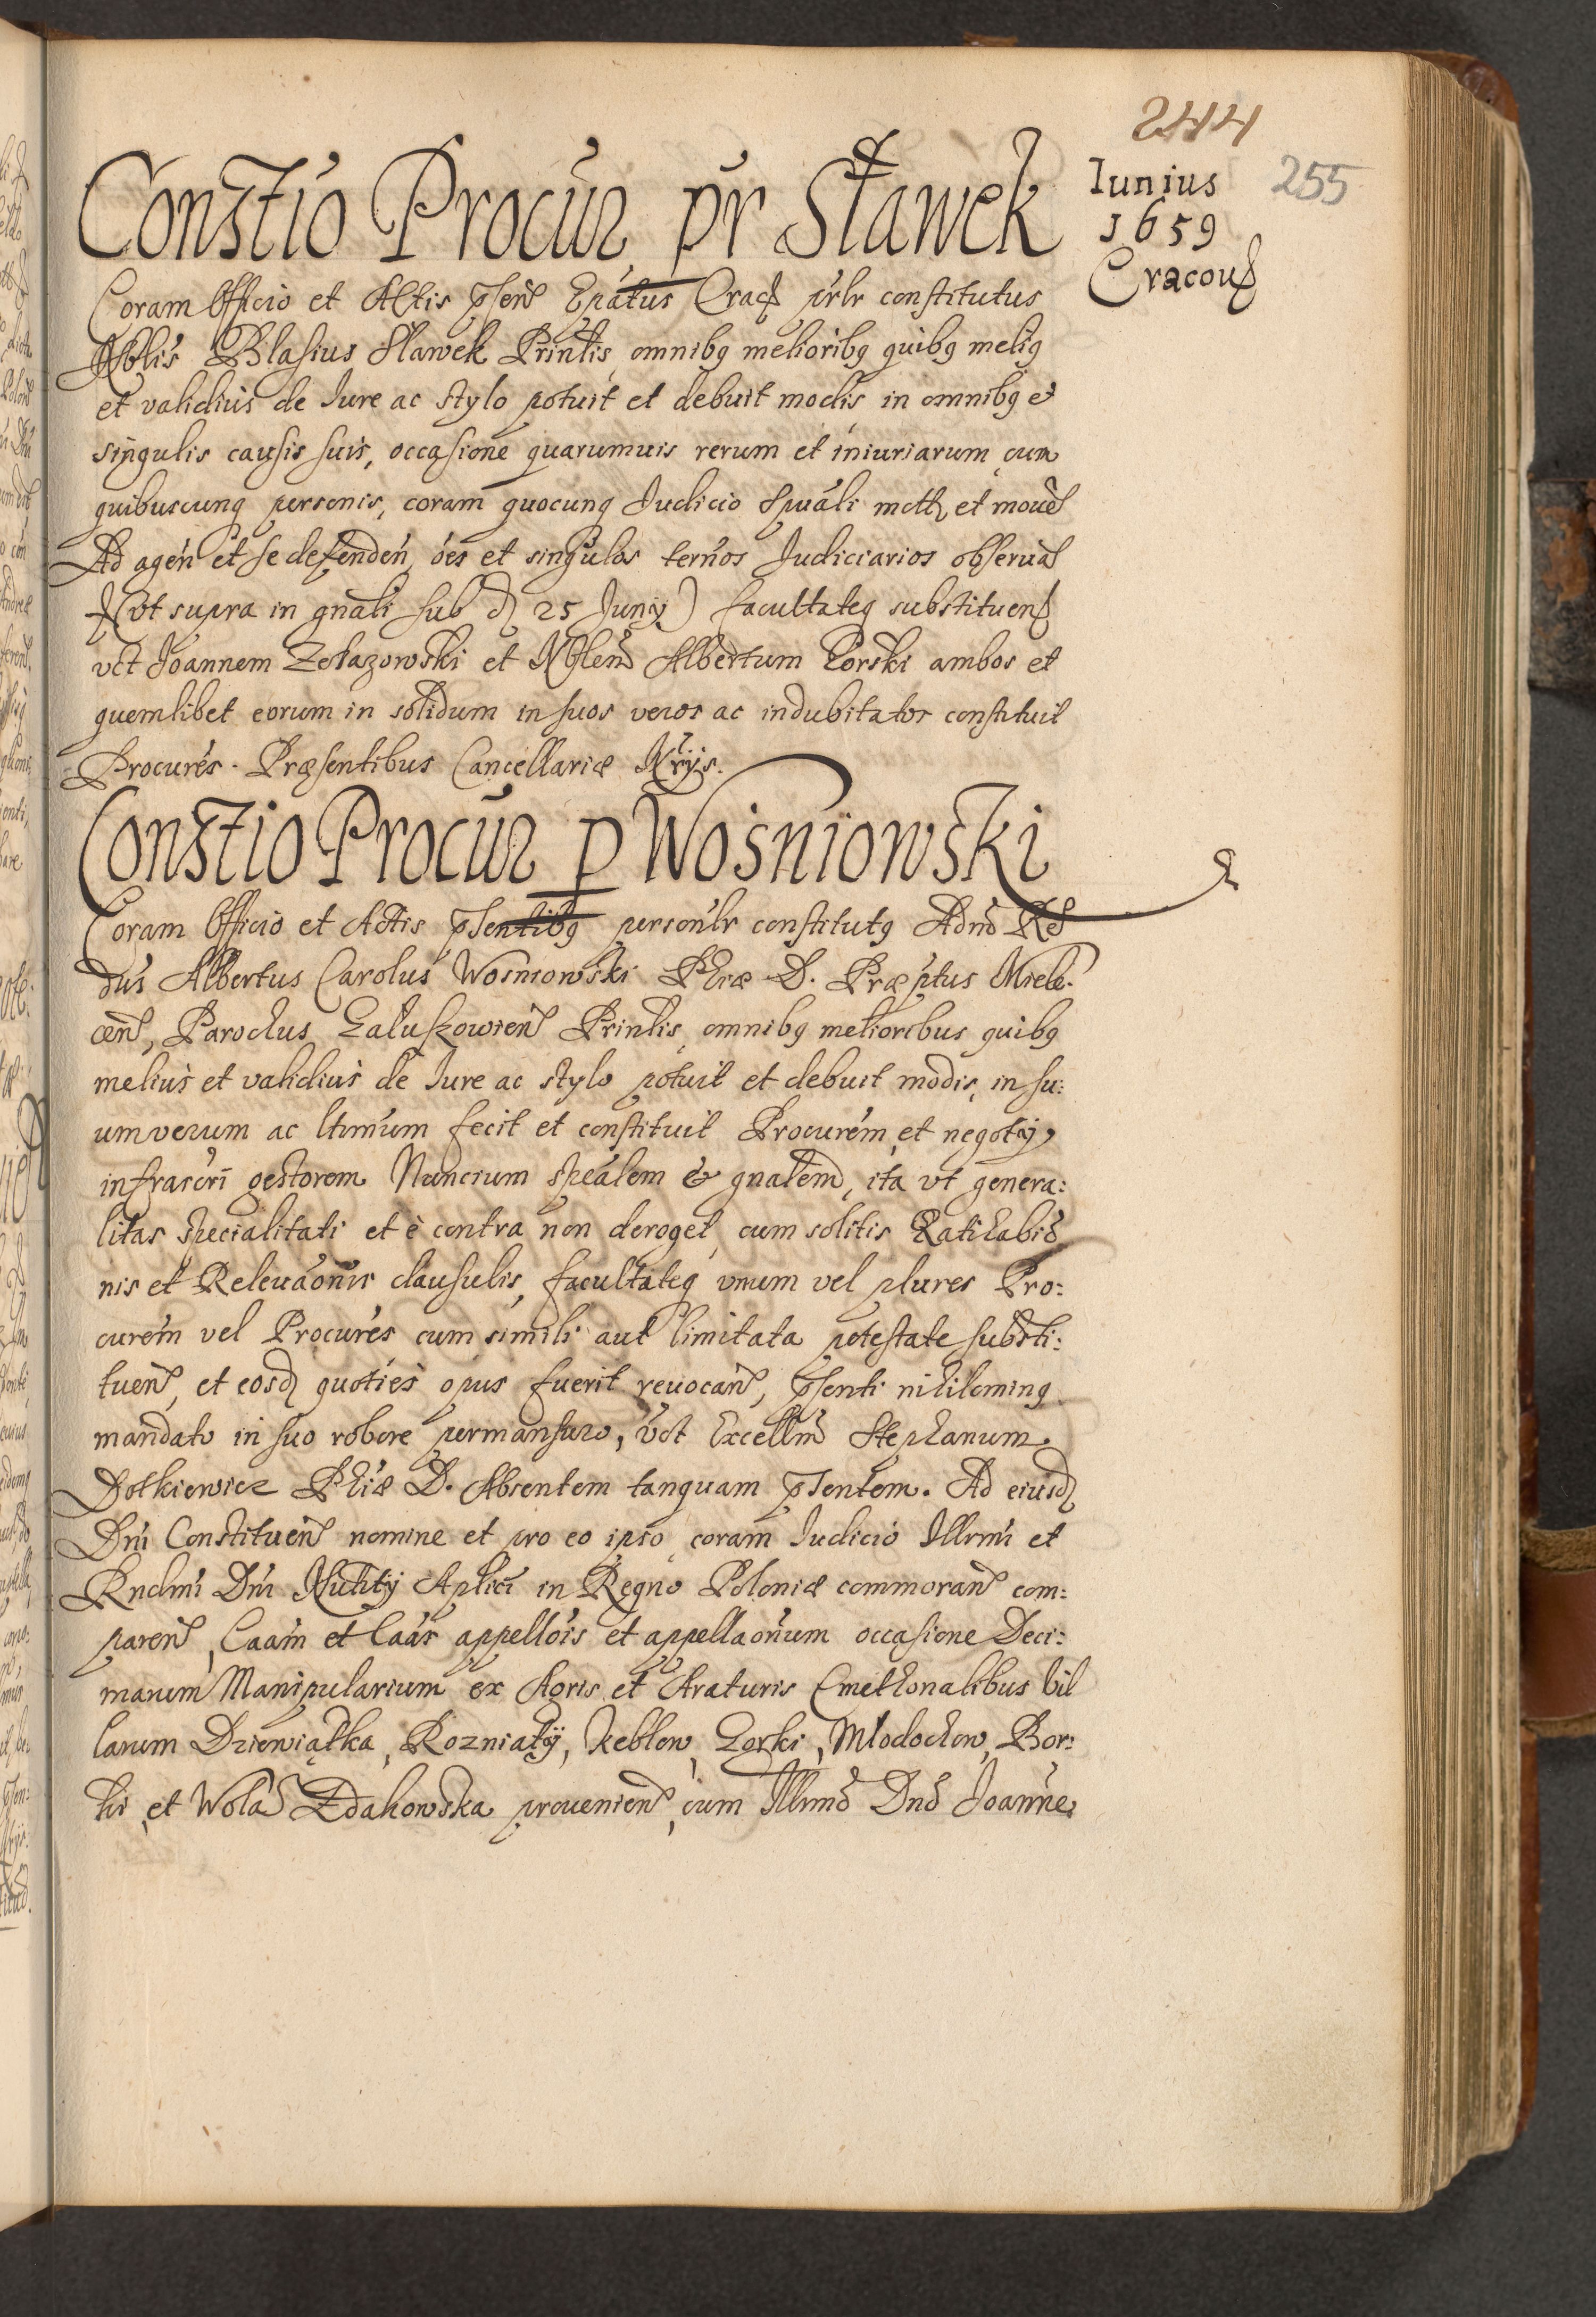 244
Iunius 255
1659
Cracoů
Constio Procur pr Sławek
Coram Officio et Actis pñseñ Epátus Crac prlr constitutus
Nblis Blasius Slawek Prinlis, omnibq melioribq quibq meliq
et validius de Iure ac stylo potuit et debuit modis in omnibq et
singulis causis suis, occasione quarumuis rerum et iniuriarum, cum
quibuscunq personis, coram quocunq Iudicio Spuáli mots et mouen
Ad agén et se defendén, óes et singulos ternos Iudiciarios obseruan
(vt supra in gnali sub d 25 Iuny) facultateq substituen
vct Joannem Zelazowski et Nblem Albertum Gorski ambos et
quemlibet eorum in solidum in suos veros ac indubitatos constituit
Procurés. Præsentibus Cancellariæ Nrijs.
Constio Procur p Wosniowski
Coram Officio et Actis pñsentibq personlr constitutq Adnd Rd
dus Albertus Carolus Wosniowski Phiæ D. Præptus Miele:
cen, Parochus Zaluszowien Prinlis, omnibq melioribus quibq
melius et validius de Iure ac stylo potuit et debuit modis, in su:
um verum ac ltimum fecit et constituit Procurém, et negotij
infrascri gestorem Nuncium speálem & gnalem, ita vt genera:
litas specialitati et è contra non deroget, cum solitis Ratihabio
nis et Releuáonis clausulis, facultateq vnum vel plures Pro:
curém vel Procurés cum simili aut limitata potestate substi:
tuen, et eosd quoties opus fuerit reuocan, pñsenti nihilominq
mandato in suo robore permansuro, vct Excellm Stephanum
Dotkiewicz Phiæ D. Absentem tanquam pñsentem. Ad eiusd
Dni Constituen nomine et pro eo ipso coram Iudicio Illrmi et
Rndmi Dni Nuntij Aplici in Regno Poloniæ commoran com:
paren, Caám et Caás appellóis et appellaonum occasione Deci:
marum Manipularium ex Agris et Araturis Cmethonalibus Vil
larum Dziewiątka, Rozniaty, Keblow, Gorki, Mlodochow, Bor:
ki, et Wola Zdakowska prouenien, cum Illrmo Dno Joanne